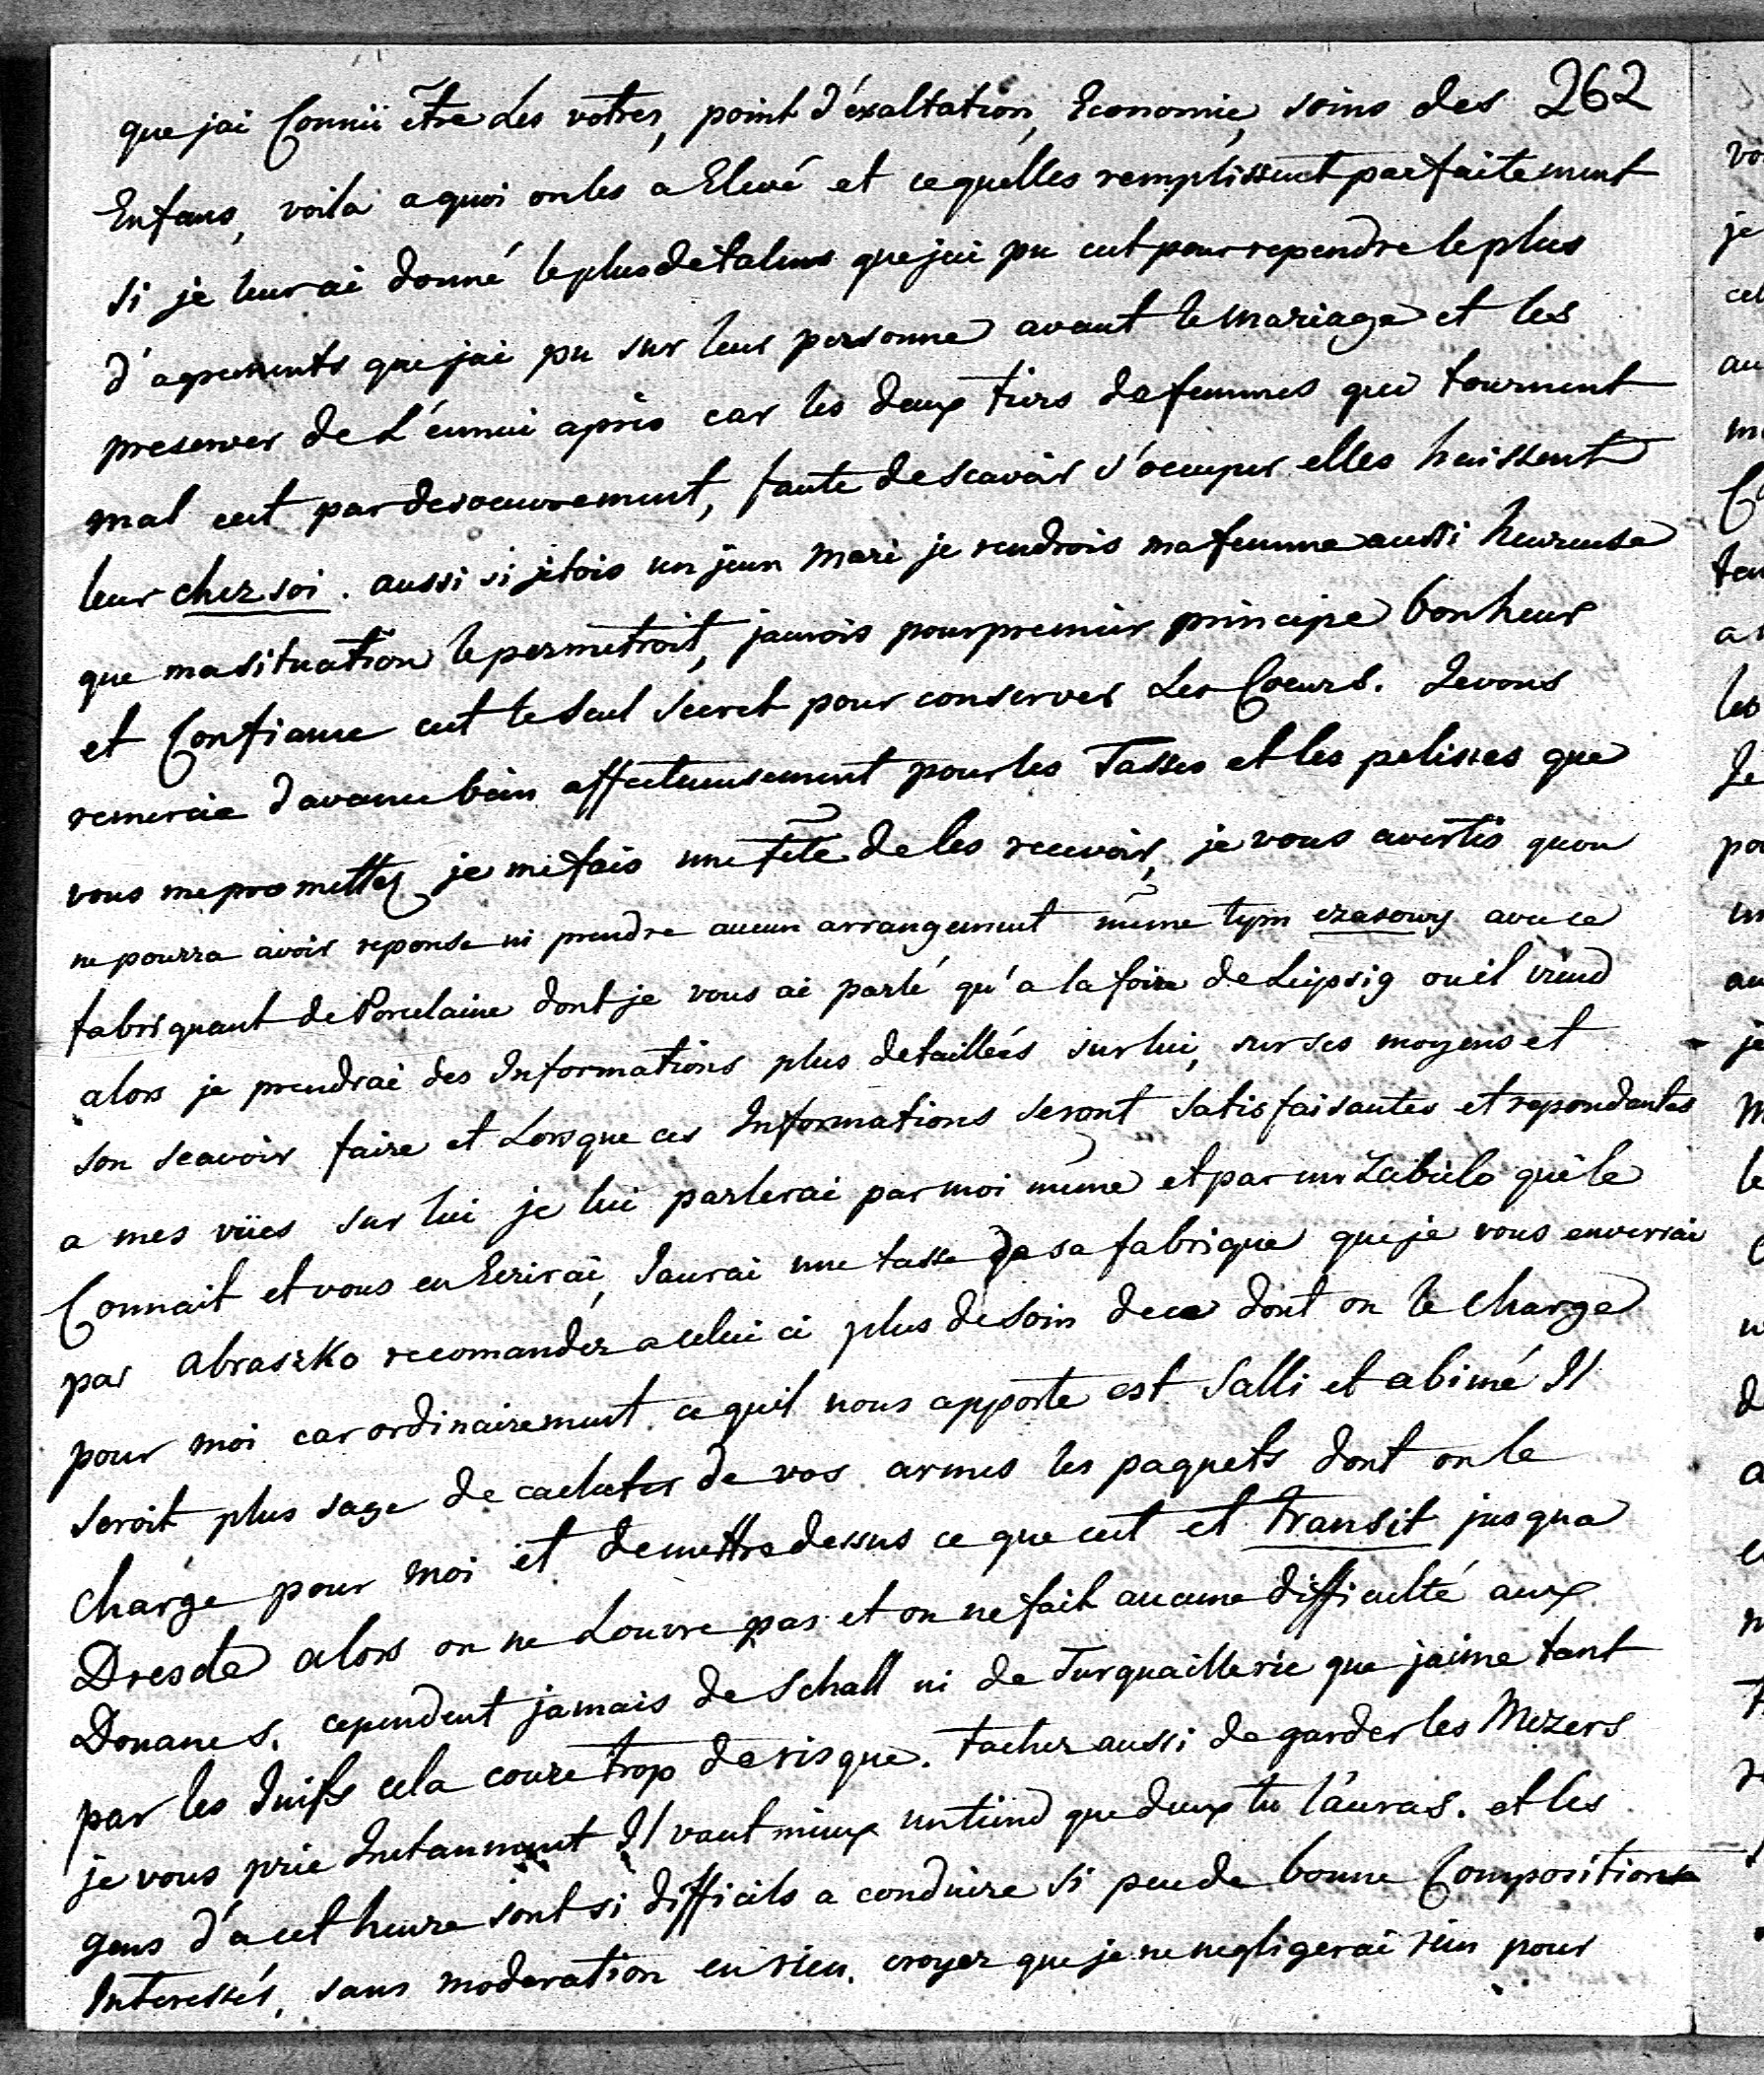 262
que jai Connü être les votres, point d'éxaltation, Economie, soins des
Enfans, voila a quoi on les a Elevé et ce quelles remplissent parfaitement
si je leur ai donné le plus de talens que jai pu cest pour rependre le plus
d'agrements que jai pu sur leur personne avant le mariage et les
preserver de L'énnui après car les deux tiers de femmes qui tournent
mal cest par desoeuvrement, faute de scavoir s'occuper elles haissent
leur chez soi. aussi si jetois un jeun mari je rendrois ma femme aussi heureuse
que ma situation le permetroit, jaurois pour premier principe bonheur
et Confiance cest le seul secret pour conserver Les Coeurs. Je vous
remercie d'avance bien affectueusement pour les Tasses et les pelisses que
vous me promettez je me fais une fête de les recevoir, je vous avertis quon
ne pourra avoir reponse ni prendre aucun arrangement même tym czasowy avec ce
fabriquant de Porcelaine dont je vous ai parlé qu'a la foire de Leipsig ou il viend
alors je prendrai des Informations plus detaillées sur lui, sur ses moyens et
son scavoir faire et Lorsque ces Informations seront satisfaisantes et repondantes
a mes vües sur lui je lui parlerai par moi même et par mr Zabielo qui le
Connait et vous en Ecrirai, Jaurai une tasse de sa fabrique que je vous enverrai
par Abraszko recomandéz a celui ci plus de soin de ce dont on le charge
pour moi car ordinairement ce quil nous apporte est Salli et abimé Il
seroit plus sage de cacheter de vos armes les paquets dont on le
charge pour moi et de mettre dessus ce que cest et transit jusqua
Dresde alors on ne Louvre pas et on ne fait aucune difficulté aux
Douanes. cependent jamais de Schall ni de Turquaillerie que jaime tant
par les Juifs cela coure trop de risque. tachez aussi de garder les Mezers
je vous prie Instanment Il vaut mieux un tiend que deux tu l'auras. et les
gens d'a cet heure sont si difficils a conduire si peu de bonne Composition
Interessés, sans moderation en rien. croyez que je ne negligerai rien pour